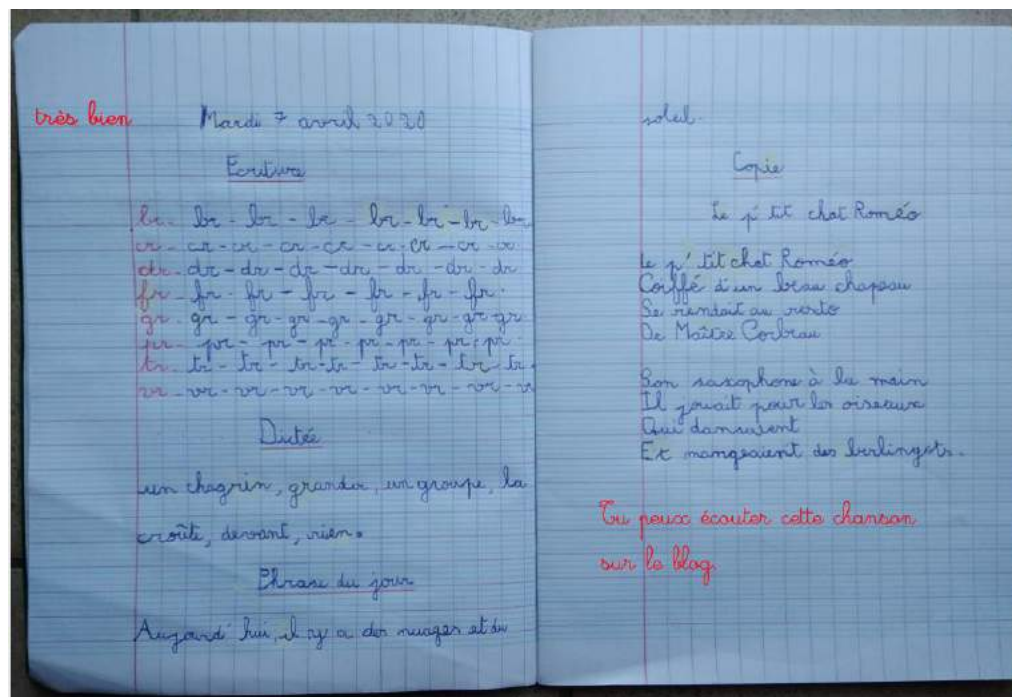 très bien
Mardi 7 avril 2020
Ecriture
br - br - br - br - br - br - br - br
cr - cr - cr - cr - cr - cr - cr - cr - cr
dr - dr - dr - dr - dr - dr - dr - dr
fr - fr - fr - fr - fr - fr - fr.
gr - gr - gr - gr - gr - gr - gr - gr - gr
pr - pr - pr - pr - pr - pr - pr - pr.
tr - tr - tr - tr - tr - tr - tr - tr - tr.
vr - vr - vr - vr - vr - vr - vr - vr - vr
Dictée
un chagrin, grandir, un groupe, la
croûte, devant, rien.
Phrase du jour
Aujourd'hui, il y a des nuages et du
soleil.
Copie
Le p'tit chat Roméo
Le p'tit chat Roméo
Coiffé d'un beau chapeau
Se rendait au resto
De Maître Corbeau
Son saxophone à la main
Il jouait pour les oiseaux
Qui dansaient
Et mangeaient des berlingots.
Tu peux écouter cette chanson
sur le blog.